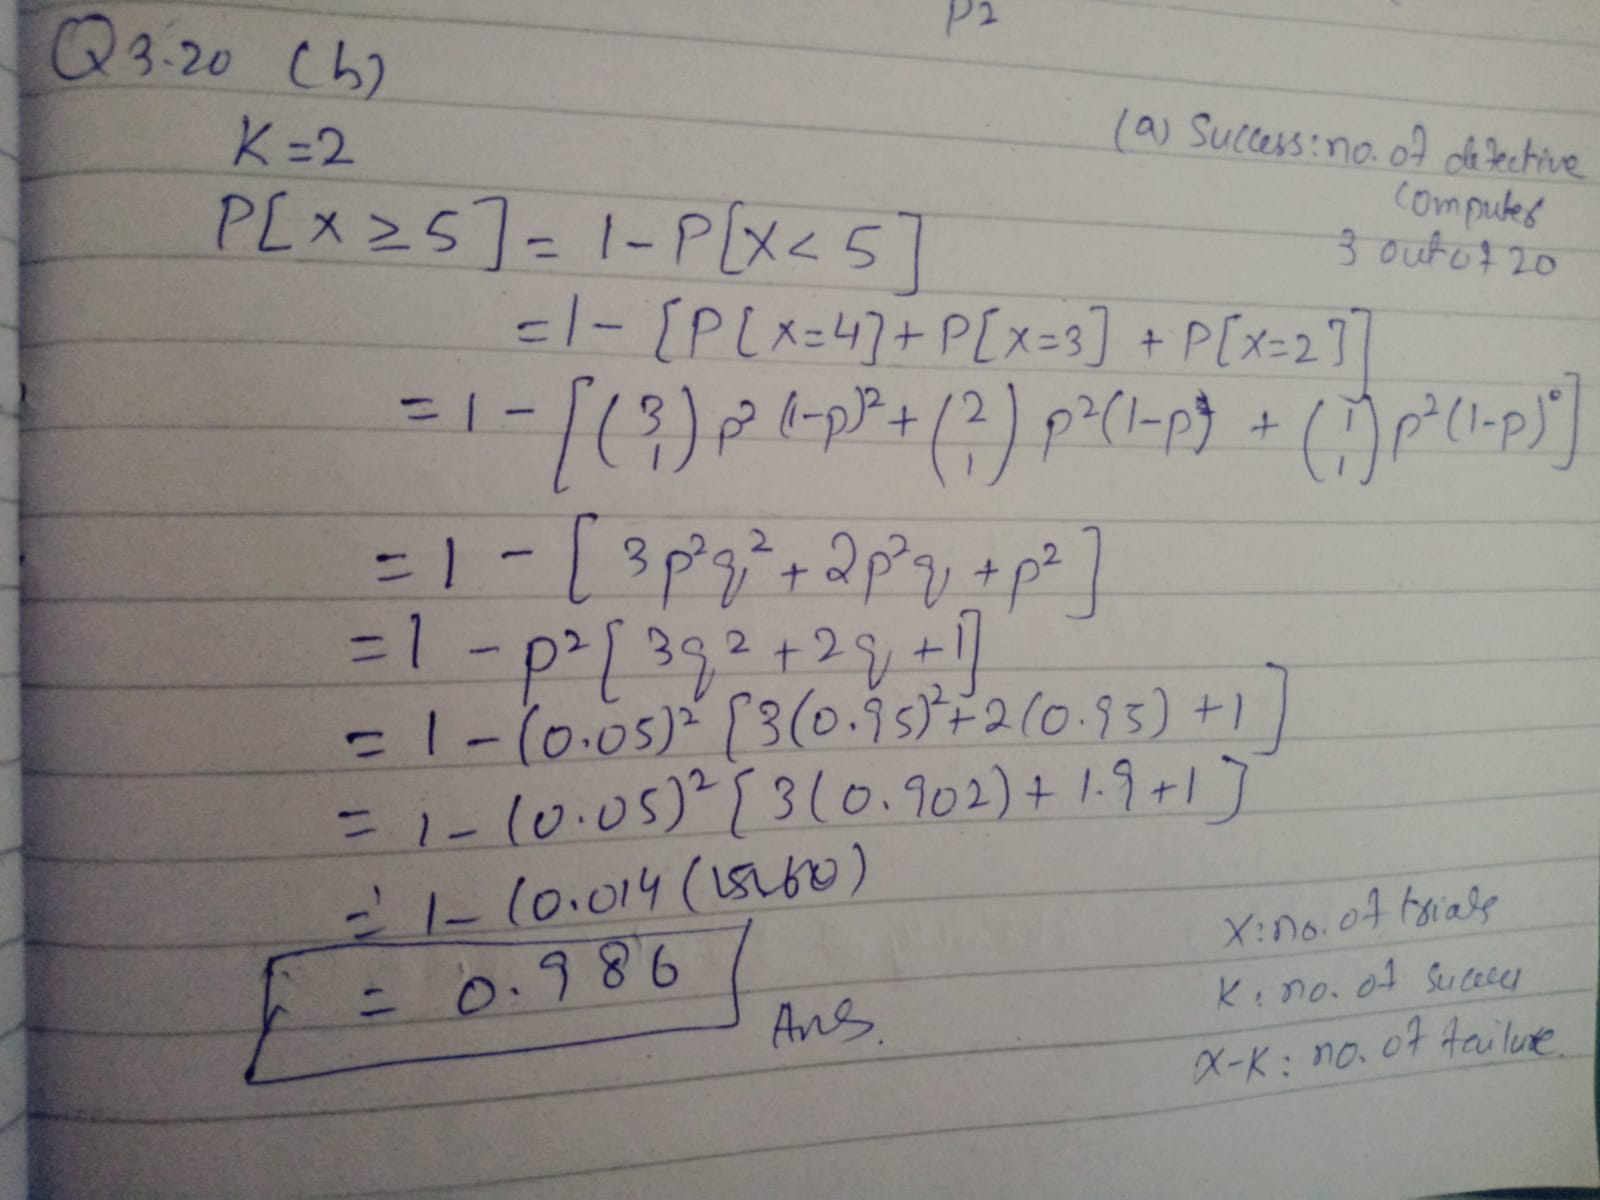 P2
Q 3.20 (b)
K=2
(a) Success: no. of defective
computer
3 out of 20
P[X≥5] = 1-P[X<5]
=1-[P[X=4]+P[X=3]+P[X=2]]
=1-[(3 1)p²(1-p)²+(2 1)p²(1-p)+(1 1)p²(1-p)⁰]
=1-[3p²q²+2p²q+p²]
=1-p²[3q²+2q+1]
=1-(0.05)²[3(0.95)²+2(0.95)+1]
=1-(0.05)²[3(0.902)+1.9+1]
=1-(0.014
=0.986
Ans.
X: no. of trials
K: no. of success
X-K: no. of failure.